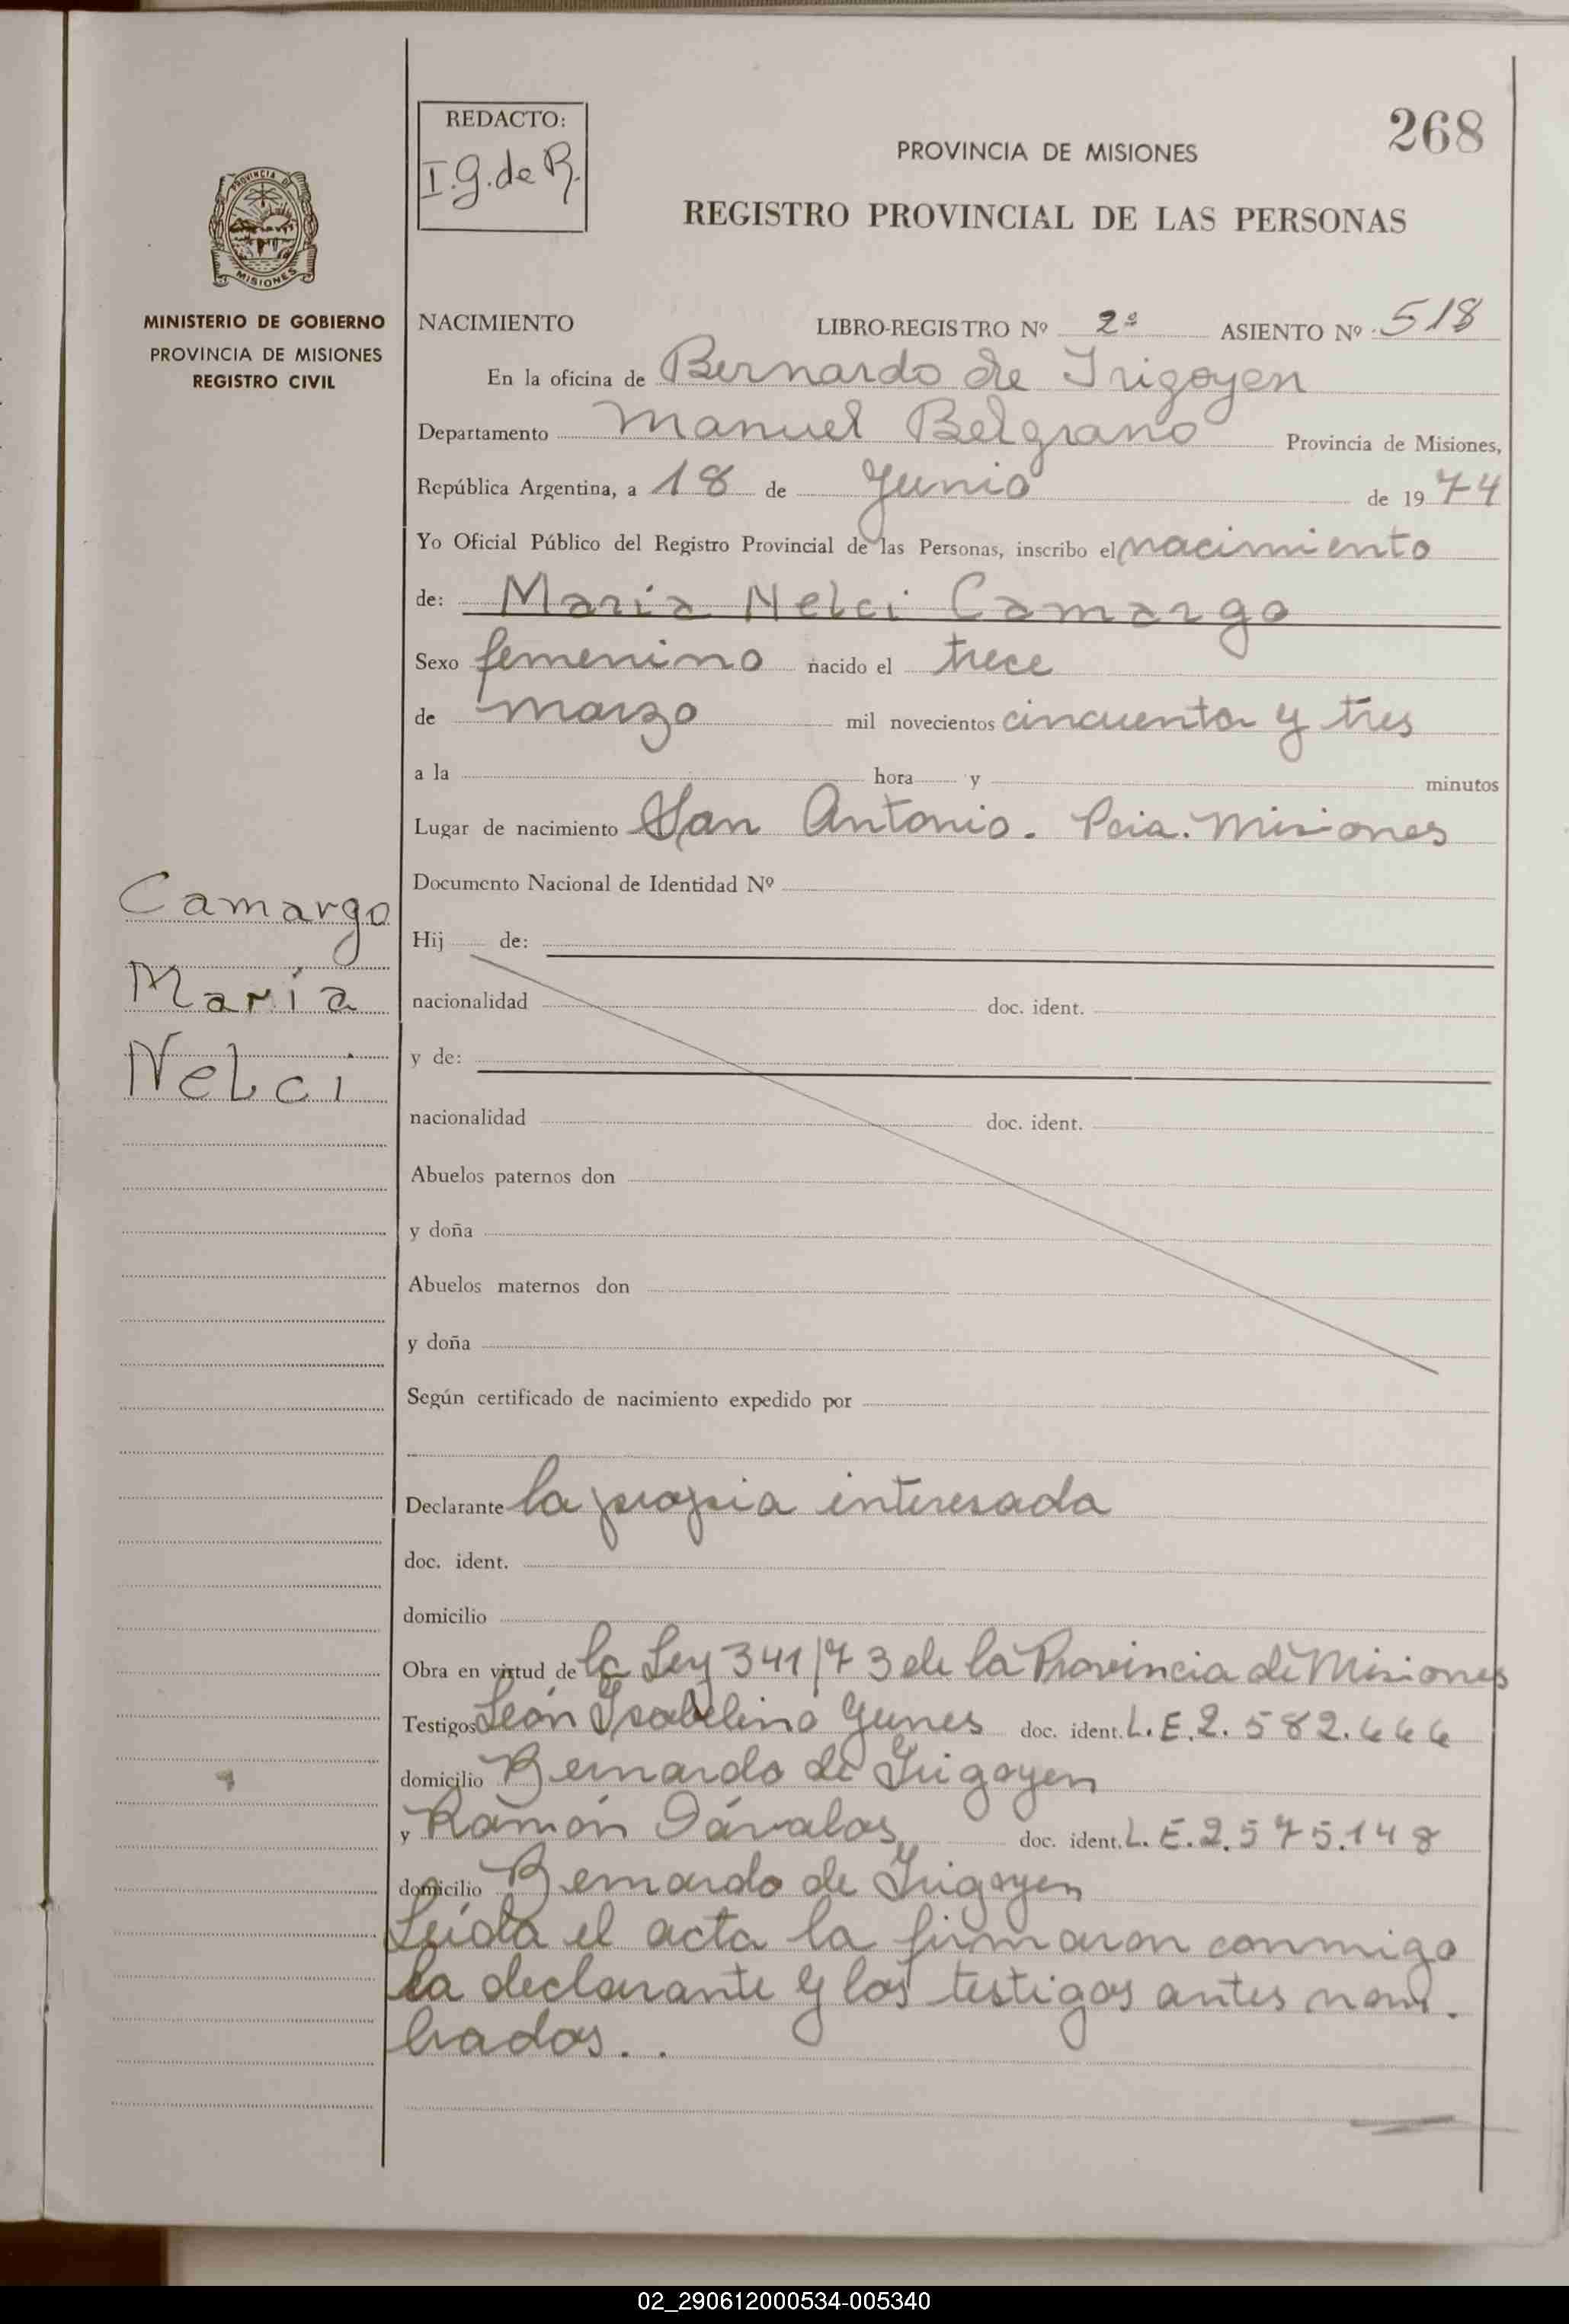 268
REDACTO:
I.G. de R.
PROVINCIA DE MISIONES
REGISTRO PROVINCIAL DE LAS PERSONAS
PROVINCIA DE
MISIONES
MINISTERIO DE GOBIERNO
PROVINCIA DE MISIONES
REGISTRO CIVIL
NACIMIENTO LIBRO-REGISTRO Nº 2º ASIENTO Nº 518
En la oficina de Bernardo de Irigoyen
Departamento Manuel Belgrano Provincia de Misiones,
República Argentina, a 18 de Junio de 1974
Yo Oficial Público del Registro Provincial de las Personas, inscribo el nacimiento
de: Maria Nelci Camargo
Sexo femenino nacido el trece
de marzo mil novecientos cincuenta y tres
a la hora y minutos
Lugar de nacimiento San Antonio. Pcia. Misiones
Documento Nacional de Identidad Nº
Camargo
María
Nelci
Hij de:
nacionalidad doc. ident.
y de:
nacionalidad doc. ident.
Abuelos paternos don
y doña
Abuelos maternos don
y doña
Según certificado de nacimiento expedido por
Declarante la propia interesada
doc. ident.
domicilio
Obra en virtud de la Ley 341/73 de la Provincia de Misiones
Testigos León Isabelino Yunes doc. ident. L.E.2.582.666
domicilio Bernardo de Irigoyen
y Ramón Dávalos doc. ident. L.E.2.575.148
domicilio Bernardo de Irigoyen
Leída el acta la firmaron conmigo
la declarante y los testigos antes nom.
brados..
02_290612000534-005340